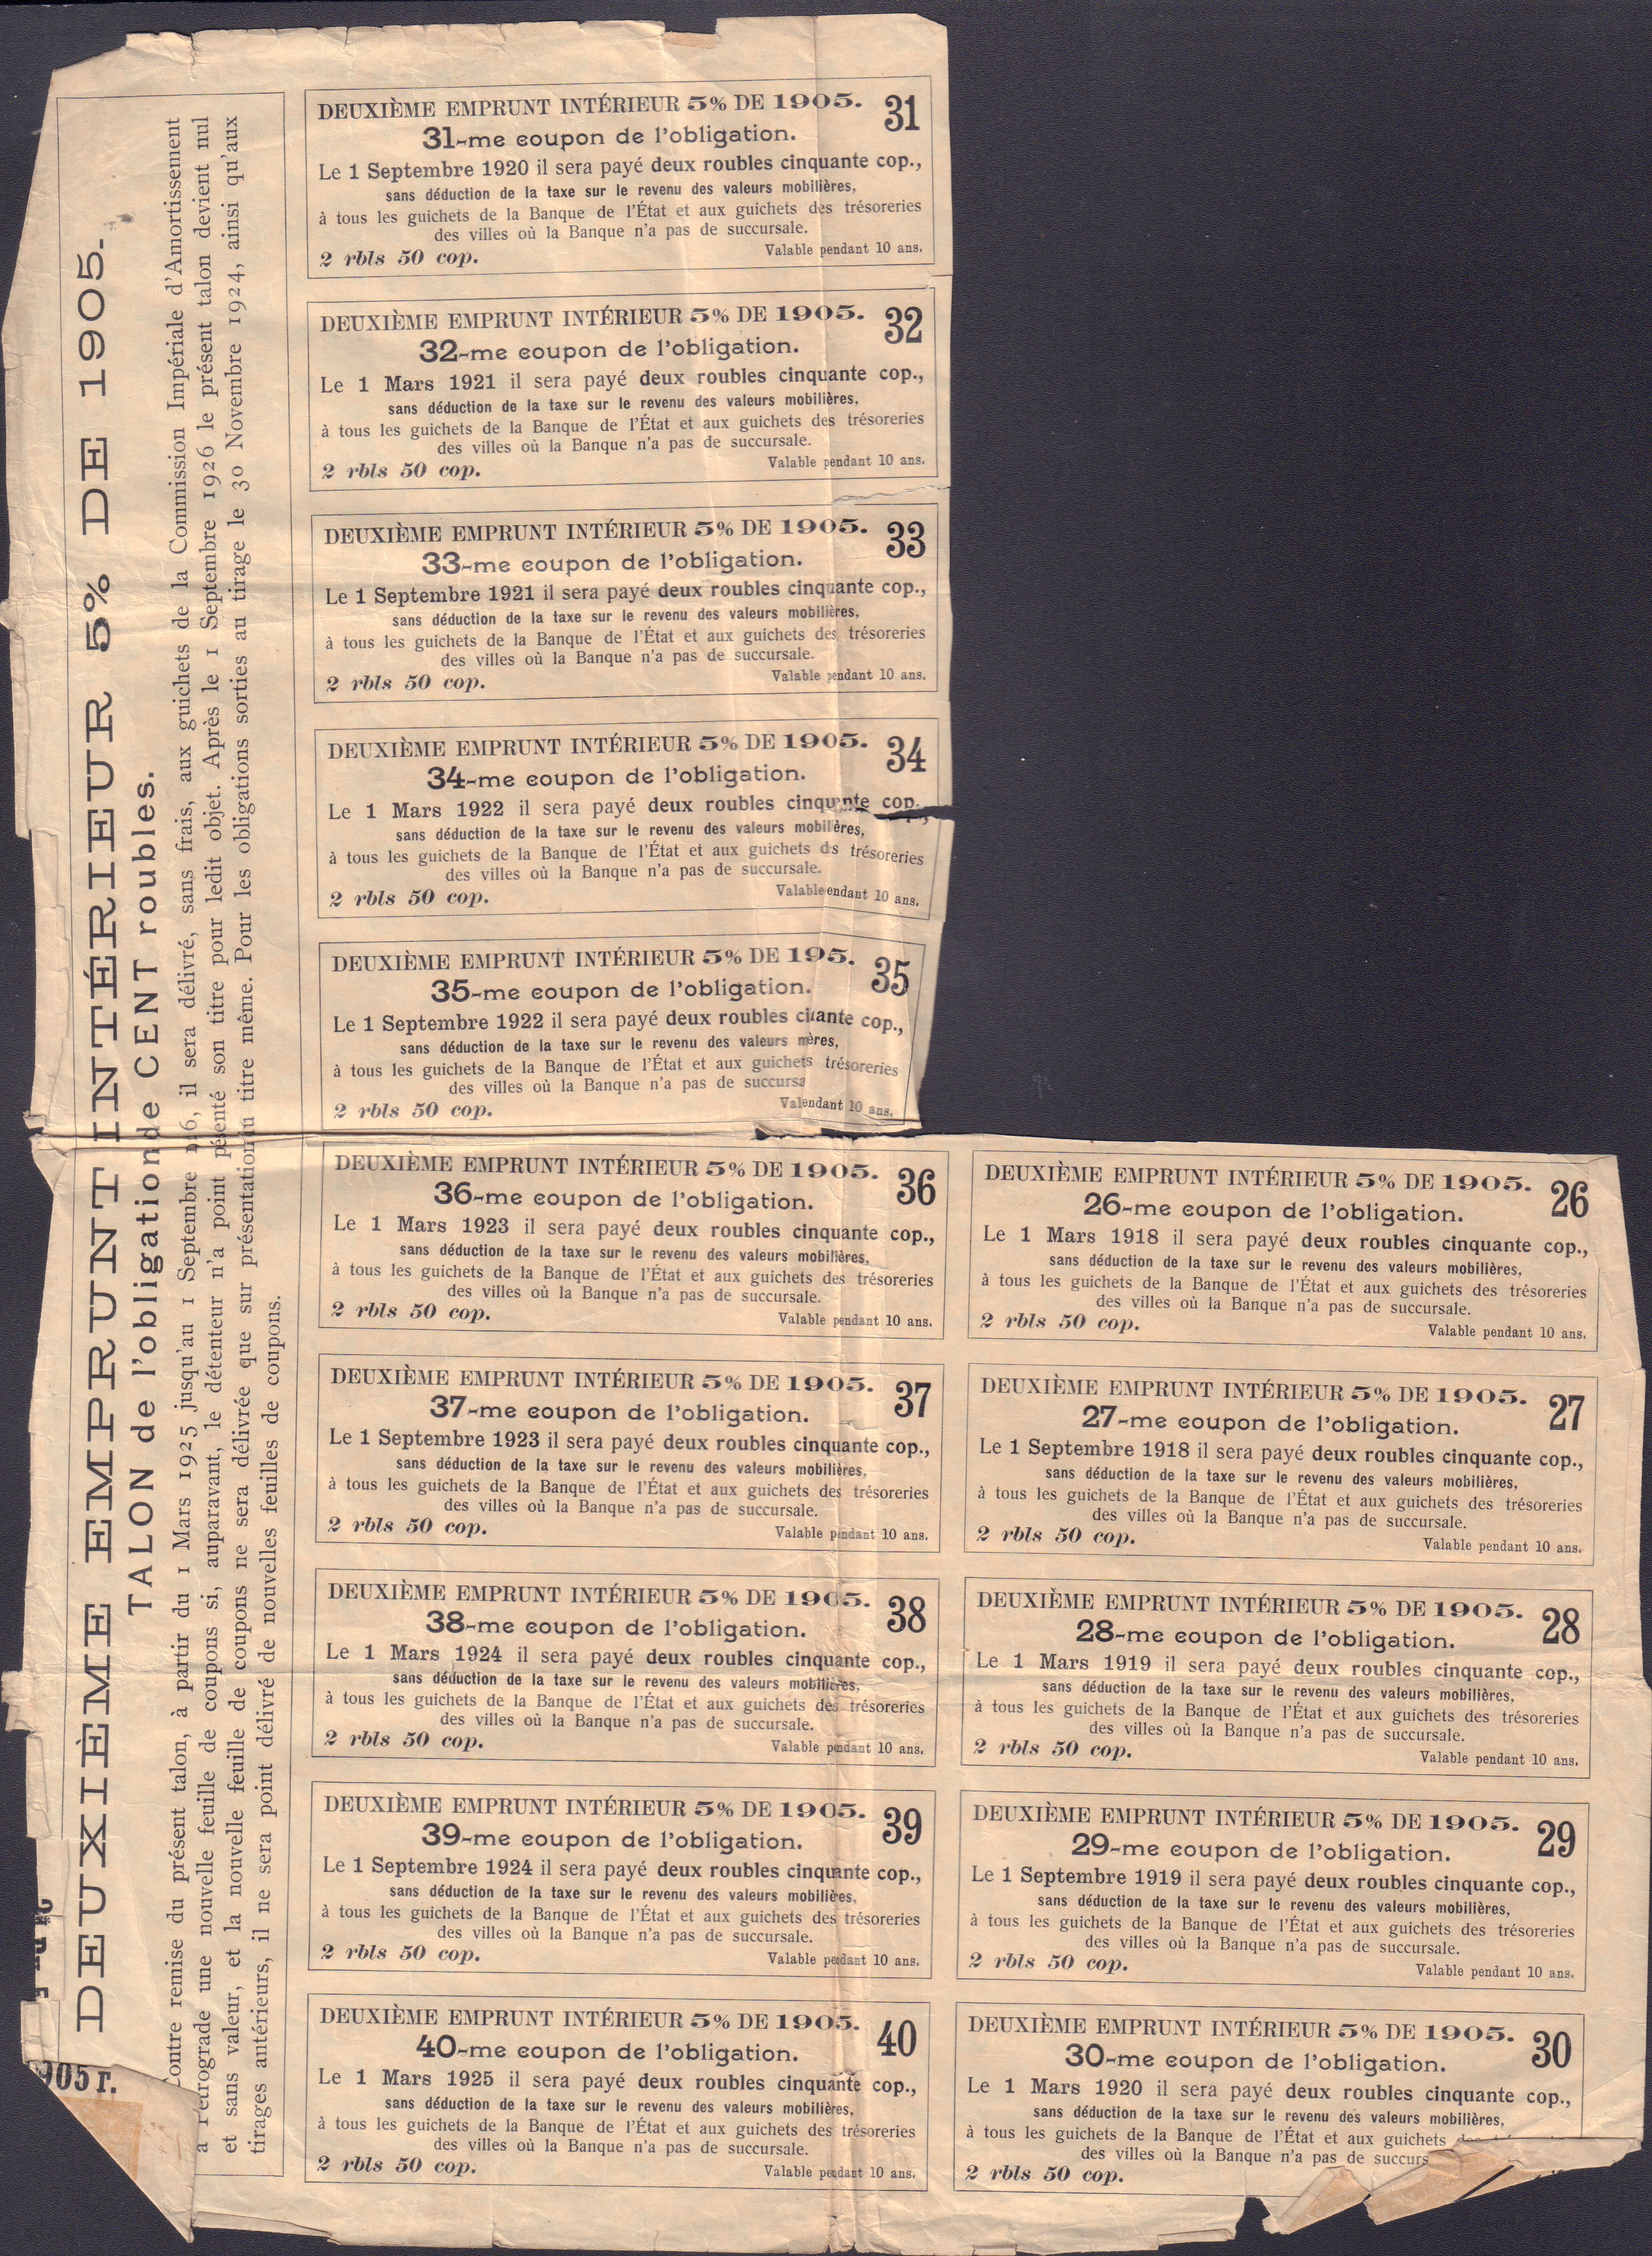 DEUXIÈME EMPRUNT INTÉRIEUR 5% DE 1905.
TALON de l'obligation de CENT roubles.
Contre remise du présent talon, à partir du 1 Mars 1925 jusqu'au 1 Septembre il sera délivré, sans frais, aux guichets de la Commission Impériale d'Amortissement
à Petrograde une nouvelle feuille de coupons si, auparavant, le détenteur n'a point son titre pour ledit objet. Après le 1 Septembre 1926 le présent talon devient nul
et sans valeur, et la nouvelle feuille de coupons ne sera délivrée que sur présentation titre même. Pour les obligations sorties au tirage le 30 Novembre 1924, ainsi qu'aux
tirages antérieurs, il ne sera point délivré de nouvelles feuilles de coupons.
905 г.
DEUXIÈME EMPRUNT INTÉRIEUR 5% DE 1905. 31
31-me coupon de l'obligation.
Le 1 Septembre 1920 il sera payé deux roubles cinquante cop.,
sans déduction de la taxe sur le revenu des valeurs mobilières,
à tous les guichets de la Banque de l'État et aux guichets des trésoreries
des villes où la Banque n'a pas de succursale.
2 rbls 50 cop. Valable pendant 10 ans.
DEUXIÈME EMPRUNT INTÉRIEUR 5% DE 1905. 32
32-me coupon de l'obligation.
Le 1 Mars 1921 il sera payé deux roubles cinquante cop.,
sans déduction de la taxe sur le revenu des valeurs mobilières,
à tous les guichets de la Banque de l'État et aux guichets des trésoreries
des villes où la Banque n'a pas de succursale.
2 rbls 50 cop. Valable pendant 10 ans.
DEUXIÈME EMPRUNT INTÉRIEUR 5% DE 1905. 33
33-me coupon de l'obligation.
Le 1 Septembre 1921 il sera payé deux roubles cinquante cop.,
sans déduction de la taxe sur le revenu des valeurs mobilières,
à tous les guichets de la Banque de l'État et aux guichets des trésoreries
des villes où la Banque n'a pas de succursale.
2 rbls 50 cop. Valable pendant 10 ans.
DEUXIÈME EMPRUNT INTÉRIEUR 5% DE 1905. 34
34-me coupon de l'obligation.
Le 1 Mars 1922 il sera payé deux roubles cinquante cop.,
sans déduction de la taxe sur le revenu des valeurs mobilières,
à tous les guichets de la Banque de l'État et aux guichets des trésoreries
des villes où la Banque n'a pas de succursale.
2 rbls 50 cop. Valable endant 10 ans.
DEUXIÈME EMPRUNT INTÉRIEUR 5% DE 195. 35
35-me coupon de l'obligation.
Le 1 Septembre 1922 il sera payé deux roubles cop.,
sans déduction de la taxe sur le revenu des valeurs
à tous les guichets de la Banque de l'État et aux guichets trésoreries
des villes où la Banque n'a pas de succursa
2 rbls 50 cop. 10 ans.
DEUXIÈME EMPRUNT INTÉRIEUR 5% DE 1905. 36
36-me coupon de l'obligation.
Le 1 Mars 1923 il sera payé deux roubles cinquante cop.,
sans déduction de la taxe sur le revenu des valeurs mobilières,
à tous les guichets de la Banque de l'État et aux guichets des trésoreries
des villes où la Banque n'a pas de succursale.
2 rbls 50 cop. Valable pendant 10 ans.
DEUXIÈME EMPRUNT INTÉRIEUR 5% DE 1905. 37
37-me coupon de l'obligation.
Le 1 Septembre 1923 il sera payé deux roubles cinquante cop.,
sans déduction de la taxe sur le revenu des valeurs mobilières,
à tous les guichets de la Banque de l'État et aux guichets des trésoreries
des villes où la Banque n'a pas de succursale.
2 rbls 50 cop. Valable pendant 10 ans.
DEUXIÈME EMPRUNT INTÉRIEUR 5% DE 1905. 38
38-me coupon de l'obligation.
Le 1 Mars 1924 il sera payé deux roubles cinquante cop.,
sans déduction de la taxe sur le revenu des valeurs mobilières,
à tous les guichets de la Banque de l'État et aux guichets des trésoreries
des villes où la Banque n'a pas de succursale.
2 rbls 50 cop. Valable pendant 10 ans.
DEUXIÈME EMPRUNT INTÉRIEUR 5% DE 1905. 39
39-me coupon de l'obligation.
Le 1 Septembre 1924 il sera payé deux roubles cinquante cop.,
sans déduction de la taxe sur le revenu des valeurs mobilières,
à tous les guichets de la Banque de l'État et aux guichets des trésoreries
des villes où la Banque n'a pas de succursale.
2 rbls 50 cop. Valable pendant 10 ans.
DEUXIÈME EMPRUNT INTÉRIEUR 5% DE 1905. 40
40-me coupon de l'obligation.
Le 1 Mars 1925 il sera payé deux roubles cinquante cop.,
sans déduction de la taxe sur le revenu des valeurs mobilières,
à tous les guichets de la Banque de l'État et aux guichets des trésoreries
des villes où la Banque n'a pas de succursale.
2 rbls 50 cop. Valable pendant 10 ans.
DEUXIÈME EMPRUNT INTÉRIEUR 5% DE 1905. 26
26-me coupon de l'obligation.
Le 1 Mars 1918 il sera payé deux roubles cinquante cop.,
sans déduction de la taxe sur le revenu des valeurs mobilières,
à tous les guichets de la Banque de l'État et aux guichets des trésoreries
des villes où la Banque n'a pas de succursale.
2 rbls 50 cop. Valable pendant 10 ans.
DEUXIÈME EMPRUNT INTÉRIEUR 5% DE 1905. 27
27-me coupon de l'obligation.
Le 1 Septembre 1918 il sera payé deux roubles cinquante cop.,
sans déduction de la taxe sur le revenu des valeurs mobilières,
à tous les guichets de la Banque de l'État et aux guichets des trésoreries
des villes où la Banque n'a pas de succursale.
2 rbls 50 cop. Valable pendant 10 ans.
DEUXIÈME EMPRUNT INTÉRIEUR 5% DE 1905. 28
28-me coupon de l'obligation.
Le 1 Mars 1919 il sera payé deux roubles cinquante cop.,
sans déduction de la taxe sur le revenu des valeurs mobilières,
à tous les guichets de la Banque de l'État et aux guichets des trésoreries
des villes où la Banque n'a pas de succursale.
2 rbls 50 cop. Valable pendant 10 ans.
DEUXIÈME EMPRUNT INTÉRIEUR 5% DE 1905. 29
29-me coupon de l'obligation.
Le 1 Septembre 1919 il sera payé deux roubles cinquante cop.,
sans déduction de la taxe sur le revenu des valeurs mobilières,
à tous les guichets de la Banque de l'État et aux guichets des trésoreries
des villes où la Banque n'a pas de succursale.
2 rbls 50 cop. Valable pendant 10 ans.
DEUXIÈME EMPRUNT INTÉRIEUR 5% DE 1905. 30
30-me coupon de l'obligation.
Le 1 Mars 1920 il sera payé deux roubles cinquante cop.,
sans déduction de la taxe sur le revenu des valeurs mobilières,
à tous les guichets de la Banque de l'État et aux guichets
des villes où la Banque n'a pas de succurs
2 rbls 50 cop.